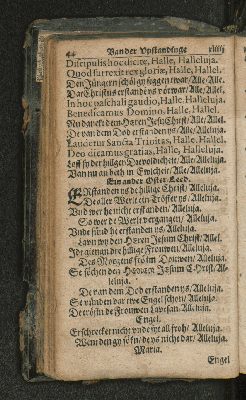 44 Van der Vpstandinge xliiij
Discipulis hoc dicite, Halle, Halleluja.
Quod surrexit rex gloriæ, Halle, Hallel.
Den Jüngern schöl gy seggen twar/ Alle/ Alle.
Dat Christus erstanden ys vorwar/ Alle/ Alle.
In hoc paschali gaudio, Halle. Halleluja.
Benedicamus Domino, Halle. Hallel.
Nu danckt dem Heren Jesu Christ/ Alle/ Allel.
De van dem Dod erstanden ys/ Alle/ Alleluja.
Laudetur Sancta Trinitas, Halle. Hallel.
Deo dicamus gratias, Halle, Halleluja.
Loff sy der hilgen Drevoldicheit/ Alle/ Alleluja.
Van nu an beth in Ewicheit/ Alle/ Alleluja.
Ein ander Oster Leed.
ERstanden ys de hillige Christ/ Alleluja.
De aller Werlt ein Tröster ys/ Alleluja.
Vnd wer he nicht erstanden/ Alleluja.
So wer de Werlt vergangen/ Alleluja.
Vnde sünd he erstanden ys/ Alleluja.
Lavn wy den Heren Jesum Christ/ Allel.
Jdt giengen dre hillige Frouwen/ Alleluja.
Des Morgens fro im Douwen/ Alleluja.
Se söchten den Heren Jesum Christ/ Alleluja.
De van dem Dod erstanden ys/ Alleluja.
Se vünden dar twe Engel schon/ Alleluja.
De trösten de Frouwen lavesan/ Alleluja.
Engel.
Erschrecket nicht vnde syt all froh/ Alleluja.
Wem den gy söken/ de ys nicht dar/ Alleluja.
Maria.
Engel